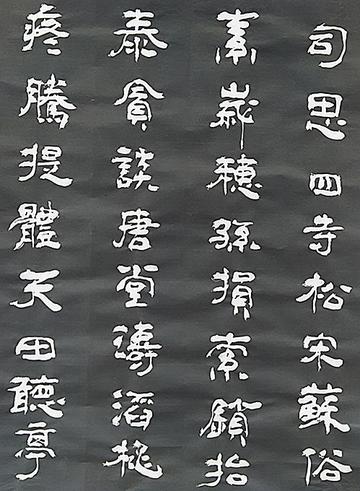 司思四寺松宋蘇俗
素歲穗孫損索鎖抬
泰貪談唐堂濤滔桃
疼騰提體天田聽亭